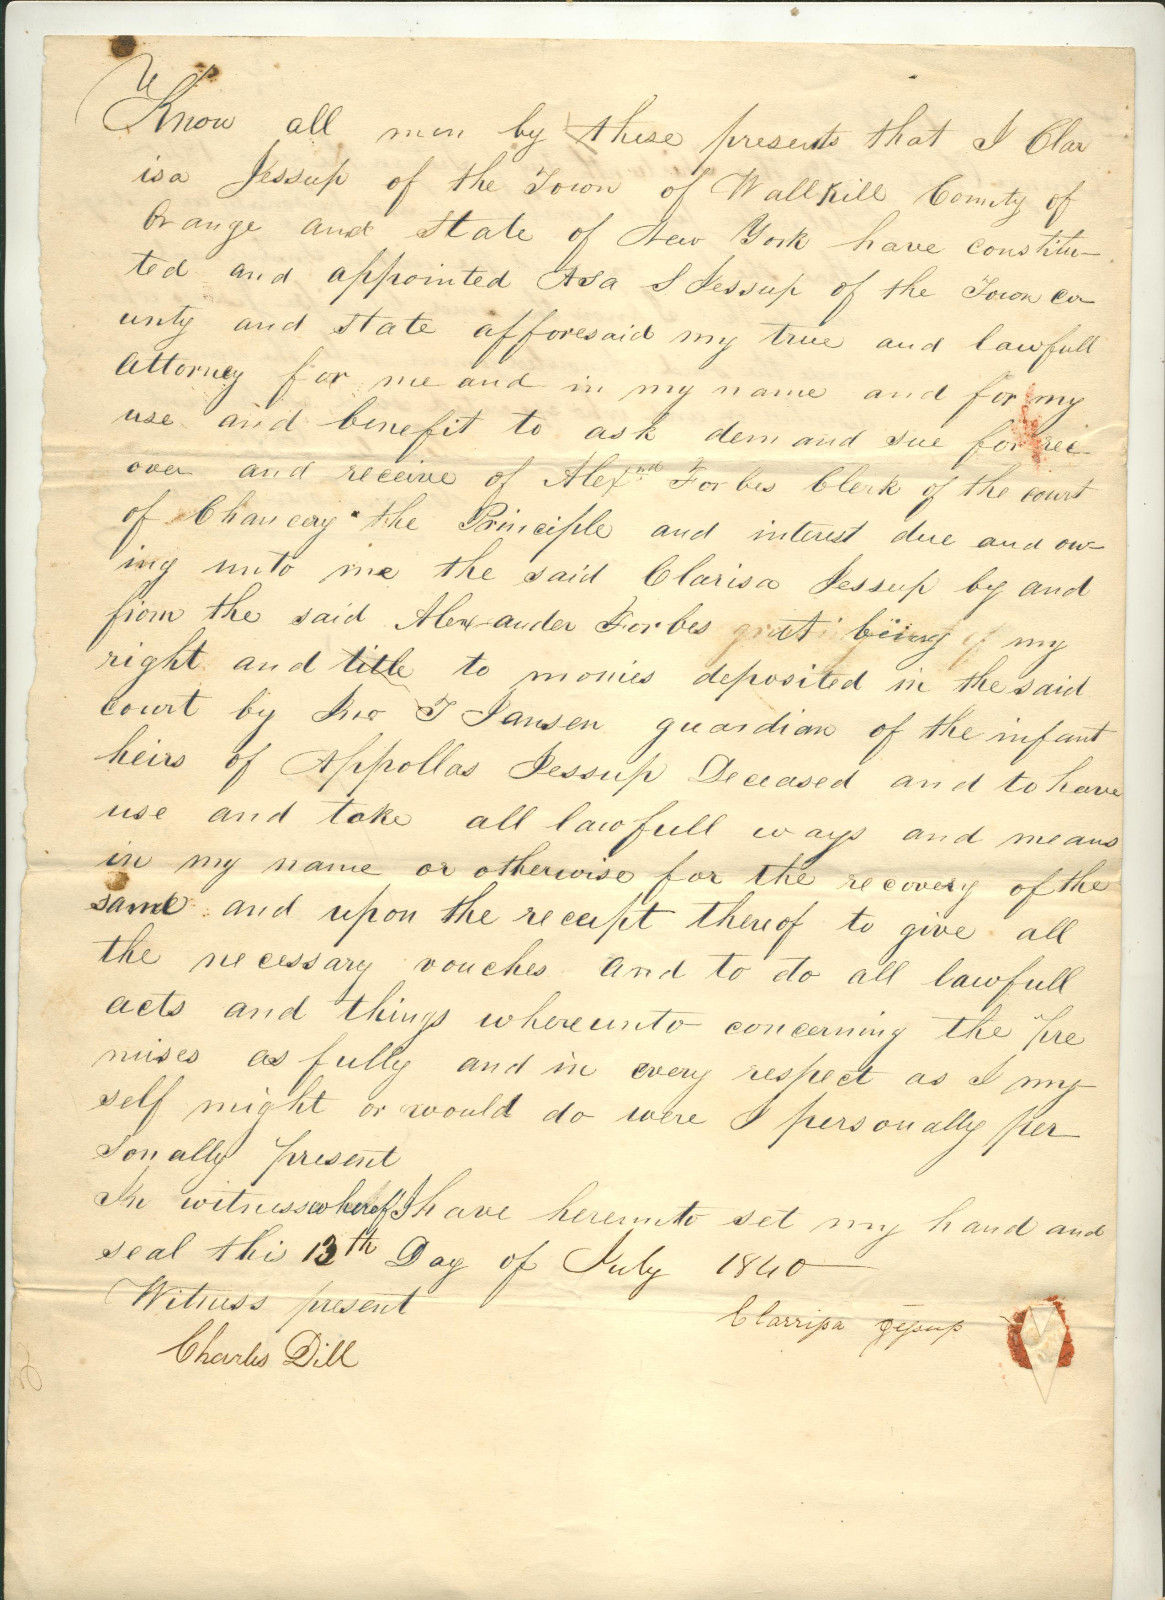 Know all men by these presents that I Clar
isa Jessup of the Town of Wallkill County of
Orange and State of New York have constitu-
ted and appointed Asa S Jessup of the Town co
unty and state afforesaid my true and lawfull
Attorney for me and in my name and for my
use and benefit to ask demand sue for rec
over and receive of Alexnd Forbes Clerk of the court
of Chancery the Principle and interest due and ow-
ing unto me the said Clarisa Jessup by and
from the said Alexander Forbes being my
right and title to monies deposited in the said
court by Jno T Jansen guardian of the infant
heirs of Appollas Jessup Deceased and to have
use and take all lawfull ways and means
in my name or otherwise for the recovery of the
same and upon the receipt thereof to give all
the necessary vouches and to do all lawfull
acts and things whereunto concerning the pre
mises as fully and in every respect as I my-
self might or would do were I personally per
sonally present
In witness whereof I have hereunto set my hand and
seal thi 13th Day of July 1840
Witness present
Clarrisa Jessup
Charles Dill